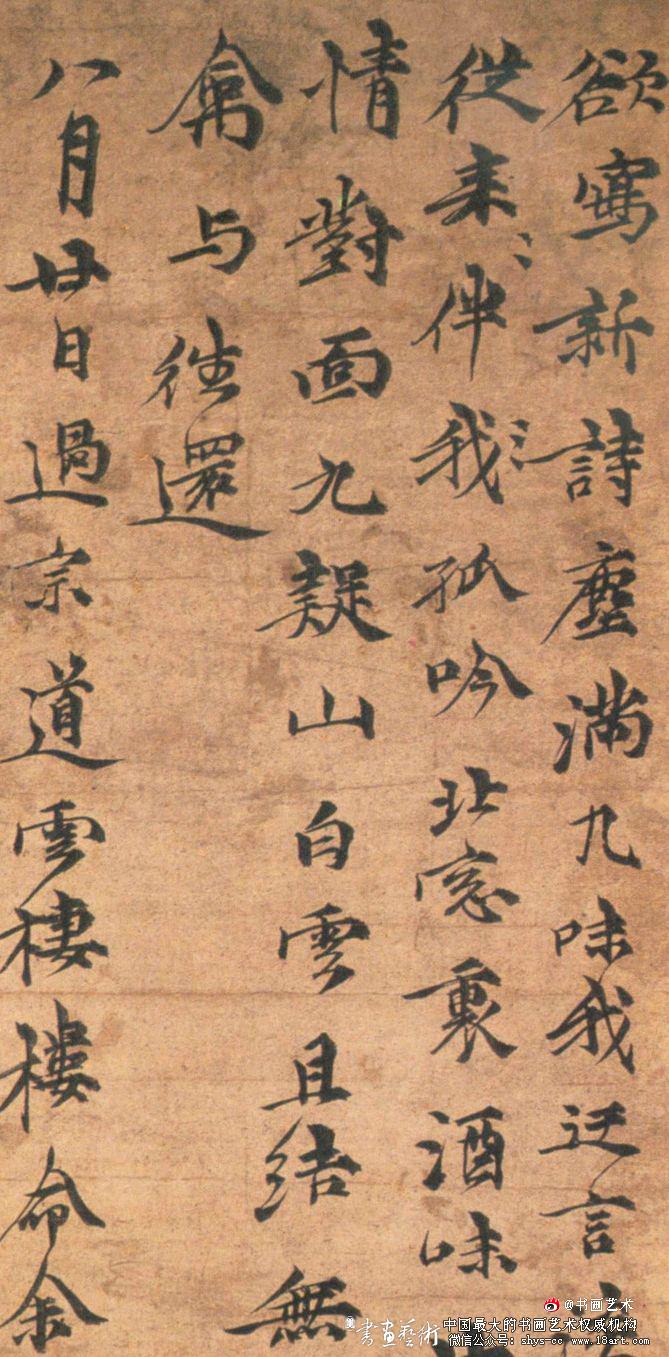 欲寫新詩塵滿九味我迂言
從来伴我孤吟北窓裏酒味
情對面九疑山白雲且結無
禽与往還
八月廿日過宗道雲棲樓命余
@书画艺术
書畫藝術
中国最大的书画艺术权威机构
微信公众号：shys-cc www.18art.com